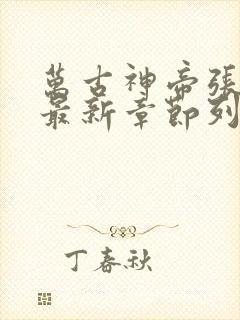 萬古神帝張
最新章節列
丁春秋